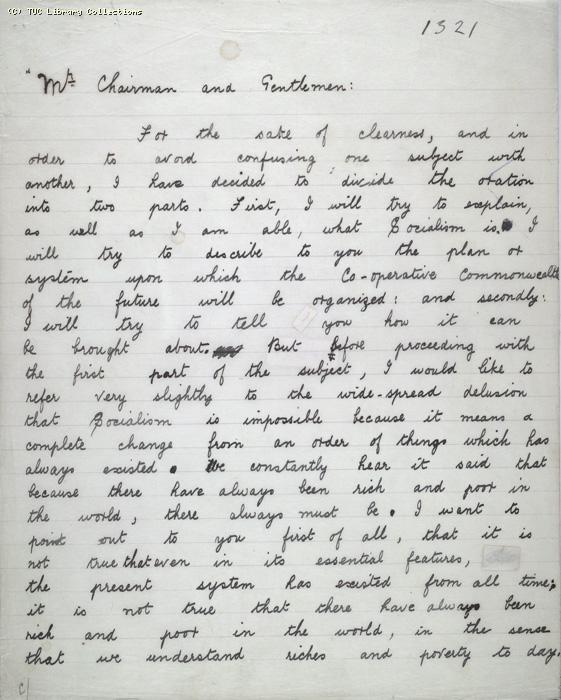 (C) TUC Library Collections
1321
"Mr. Chairman and Gentlemen:
For the sake of clearness, and in
order to avoid confusing one subject with
another, I have decided to divide the oration
into two parts. First, I will try to explain,
as well as I am able, what Socialism is. I
will try to describe to you the plan or
system upon which the Co-operative Commonwealth
of the future will be organized: and secondly:
I will try to tell you how it can
be brought about. But before proceeding with
the first part of the subject, I would like to
refer very slightly to the wide-spread delusion
that Socialism is impossible because it means a
complete change from an order of things which has
always existed. We constantly hear it said that
because there have always been rich and poor in
the world, there always must be. I want to
point out to you first of all, that it is
not true that even in its essential features,
the present system has existed from all time;
it is not true that there have always been
rich and poor in the world, in the sense
that we understand riches and poverty to day.